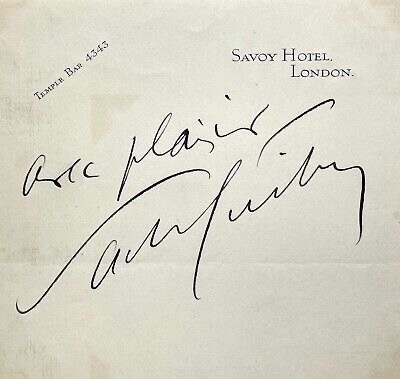 Temple Bar 4343
Savoy Hotel,
London.
avec plaisir
Sacha Guitry